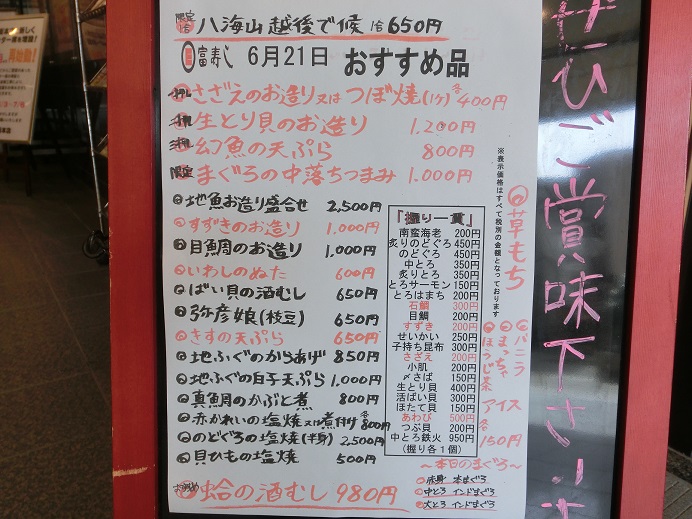 限定 八海山 越後で候 冾 650円
富寿し 6月21日 おすすめ品
さざえのお造り又はつぼ焼(1ケ)各400円
生とり貝のお造り 1,200円
幻魚の天ぷら 800円
限定 まぐろの中落ちつまみ 1,000円
地魚お造り盛合せ 2,500円
すずきのお造り 1,000円
目鯛のお造り 1,000円
いわしのぬた 600円
ばい貝の酒むし 650円
弥彦娘(枝豆) 650円
きすの天ぷら 650円
地ふぐのからあげ 850円
地ふぐの白子天ぷら 1,000円
真鯛のかぶと煮 800円
赤かれいの塩焼又は煮付け 各800円
のどぐろの塩焼(半身) 2,500円
貝ひもの塩焼 500円
おすすめ 蛤の酒むし 980円
「握り一貫」
南蛮海老 200円
炙りのどぐろ 450円
のどぐろ 450円
中とろ 350円
炙りとろ 350円
とろサーモン 150円
とろはまち 200円
石鯛 300円
目鯛 200円
すずき 200円
せいかい 250円
子持ち昆布 300円
さざえ 200円
小肌 200円
〆さば 150円
生とり貝 400円
活ばい貝 300円
ほたて貝 150円
あわび 500円
つぶ貝 200円
中とろ鉄火 950円
(握り各1個)
～本日のまぐろ～
赤身 本まぐろ
中とろ インドまぐろ
大とろ インドまぐろ
※表示価格はすべて税別の金額となっております
草もち
バニラ
まっちゃ
ほうじ茶
アイス
各150円
ぜひご賞味下さいませ